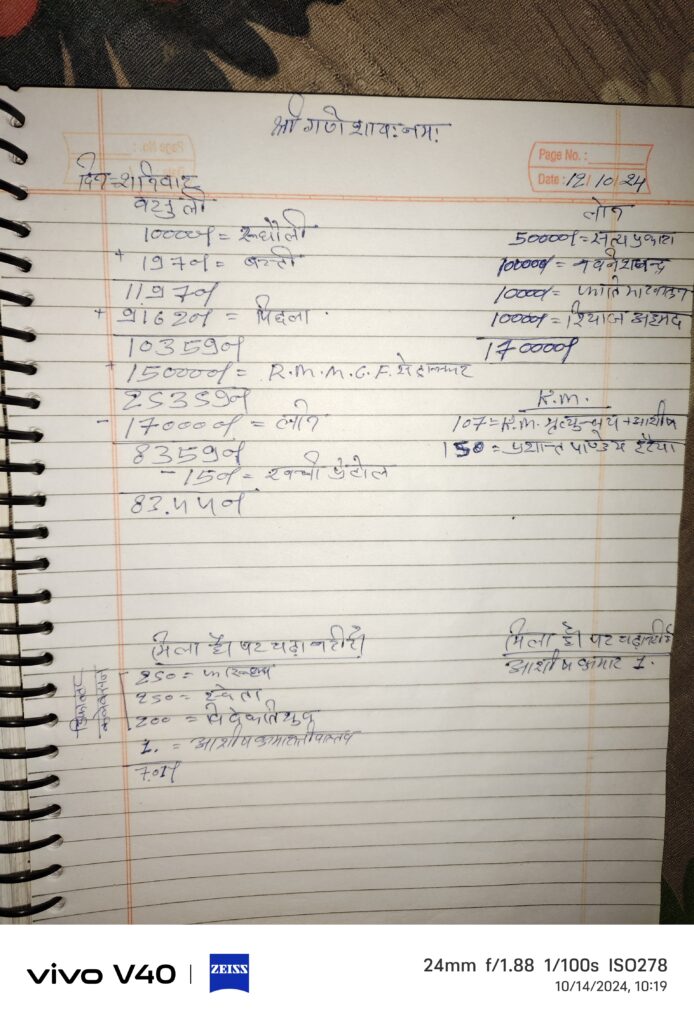 श्री गणेशायः नमः
Page No.:
Date: 12/10/24
दिन-शनिवार
वसुली
10000/= रूधौली
+ 1970/= बस्ती
11970/
+ 91620/= पिछला
103590/
+ 150000/= R.M.M.C.F.
253590/
- 170000/= लोन
83590/
- 150/= खर्चा पेट्रोल
83440/
लोन
50000/= सत्य प्रकाश
100000/=
10000/=
10000/= रियाज अहमद
170000/
K.M.
107= K.M. मृत्युन्जय + आशीष
150= प्रशान्त पाण्डेय
मिला है। पर चढ़ा नही है।
250 =
250 = श्वेता
200 =
1. = आशीष कुमार श्रीवास्तव
701/
मिला है। पर चढ़ा नही है
आशीष कुमार 1.
vivo V40
ZEISS
24mm f/1.88 1/100s ISO278
10/14/2024, 10:19